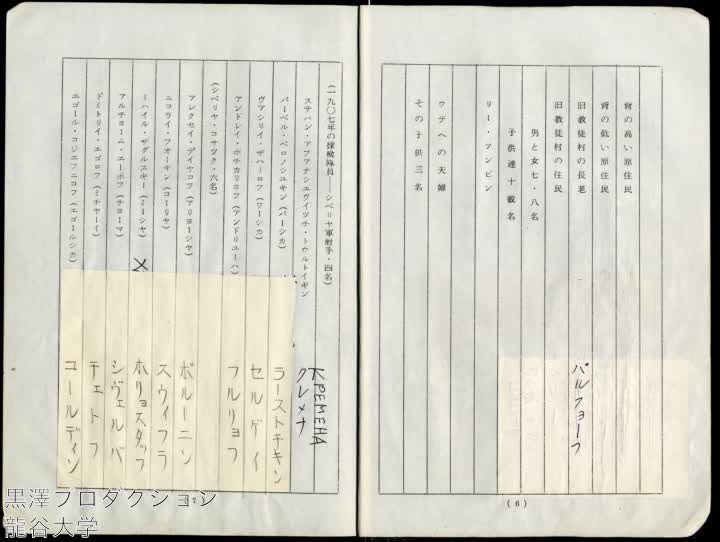 背の高い原住民
背の低い原住民
旧教徒村の長老
旧教徒村の住民
男と女七・八名
子供達十数名
リー・ツンビン
ウデヘの夫婦
その子供三名
パルフョーフ
(6)
(一九〇七年の探検隊員——シベリヤ軍射手・四名)
ステパン・アファナシエヴイツチ・トウルトイギン
パーベル・ベロノシユキン(パーシカ)
ヴァシリイ・ザハーロフ(ワーシカ)
アンドレイ・ポチカリロフ(アンドリユーハ)
(シベリヤ・コサツク・六名)
アレクセイ・デイヤコフ(アリョーシヤ)
ニコライ・フオーキン(コーリヤ)
ミハイル・ザグルスキー(ミーシヤ)
アルチョーム・エーホフ(チヨーマ)
ドミトリイ・エゴロフ(ミチヤーイ)
エゴール・コジエフニコフ(エゴールシカ)
КРЕМЕНА
クレメナ
ラーストチキン
セルゲイ
フルリョフ
ボルーニン
スヴィフラ
ホリョスタッフ
シヴェルバ
チェトフ
コールディン
黒澤プロダクション
龍谷大学